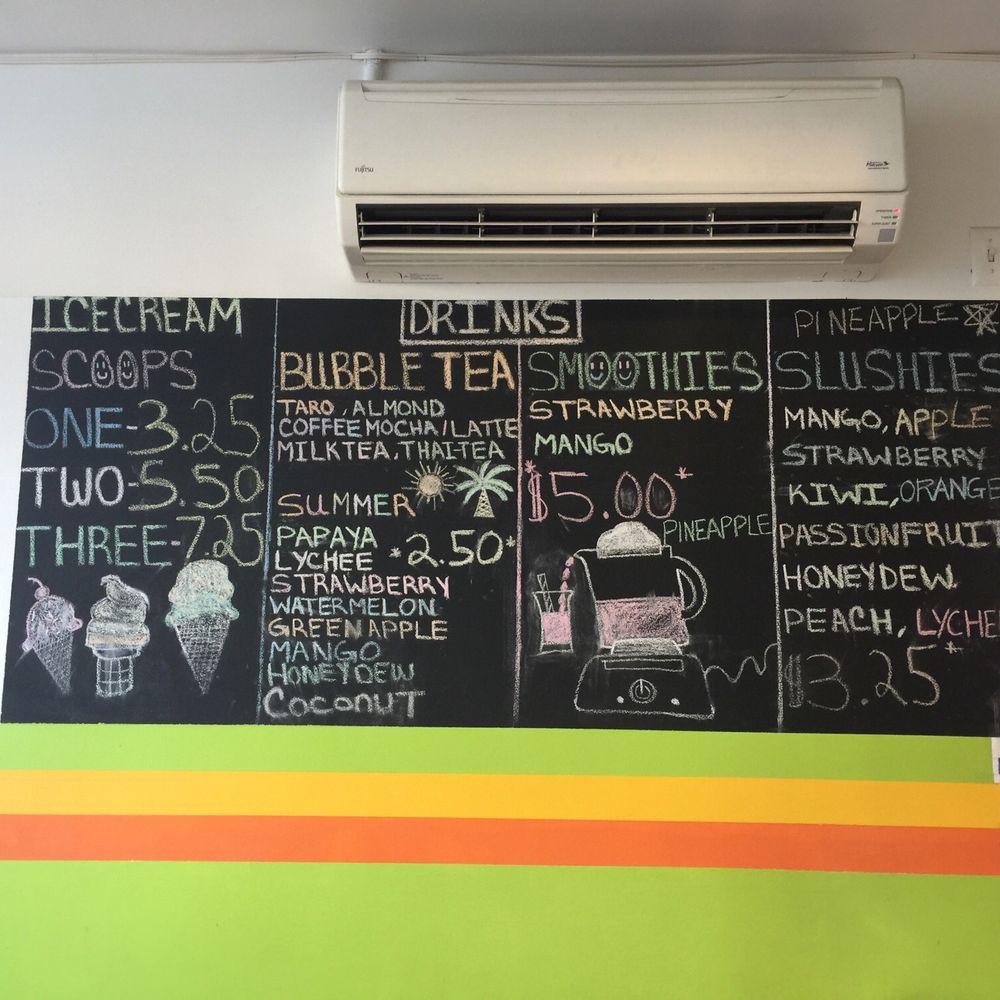 FUJITSU
Halcyon
OPERATION
TIMER
ICECREAM
SCOOPS
ONE-3.25
TWO-5.50
THREE-7.25
DRINKS
BUBBLE TEA
TARO, ALMOND
COFFEE MOCHA/LATTE
MILKTEA, THAITEA
SUMMER
PAPAYA
LYCHEE
*2.50*
STRAWBERRY
WATERMELON
GREEN APPLE
MANGO
HONEYDEW
COCONUT
SMOOTHIES
STRAWBERRY
MANGO
*$5.00*
PINEAPPLE
PINEAPPLE
SLUSHIES
MANGO, APPLE
STRAWBERRY
KIWI, ORANGE
PASSIONFRUIT
HONEYDEW
PEACH, LYCHE
$3.25*